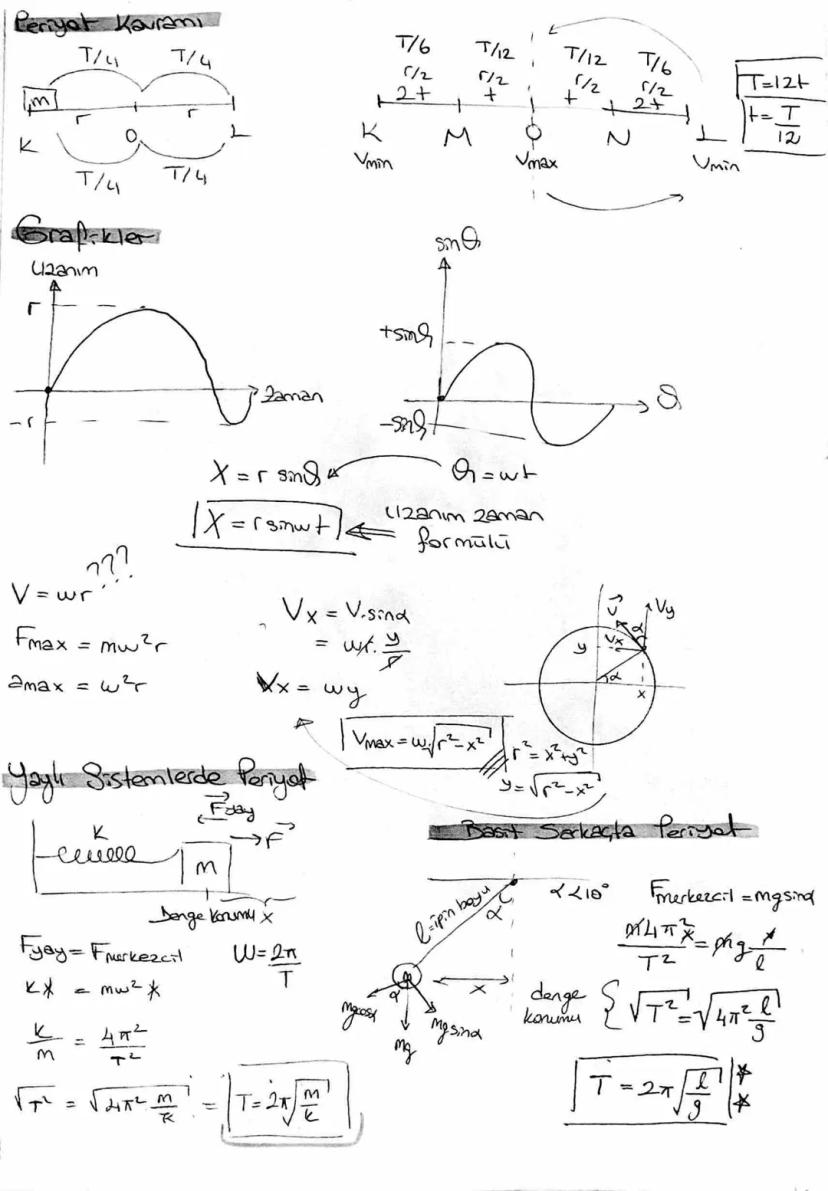 Periyot Kavramı
T/4 T/4
m
r r
K O L
T/4 T/4
T/6 T/12 T/12 T/6
r/2 r/2 r/2 r/2
2t t t 2t
K M O N L
Vmin Vmax Vmin
T=12t
t=T/12
Grafikler
Uzanım
r
-r
Zaman
sinθ
+sinθ
-sinθ
θ
X = r sinθ
θ = wt
X = r sinwt
Uzanım zaman
formülü
V = wr ???
Fmax = mw²r
amax = w²r
Vx = V.sinα
= wr. y/r
Vx = wy
V Vy
α
y Vx
α
x
Vmax = w.√r²-x²
r² = x²+y²
y = √r²-x²
Yaylı Sistemlerde Periyot
Fyay
K
F
m
Denge konumu x
Fyay = Fmerkezcil
W = 2π/T
kx = mw²x
k/m = 4π²/T²
√T² = √4π² m/k = T = 2π√m/k
Basit Sarkaçta Periyot
α<10°
l=ipin boyu
α
x
α
mgcosα
mgsinα
mg
Fmerkezcil = mgsinα
m4π²x/T² = mg x/l
denge
konumu
√T² = √4π² l/g
T = 2π√l/g